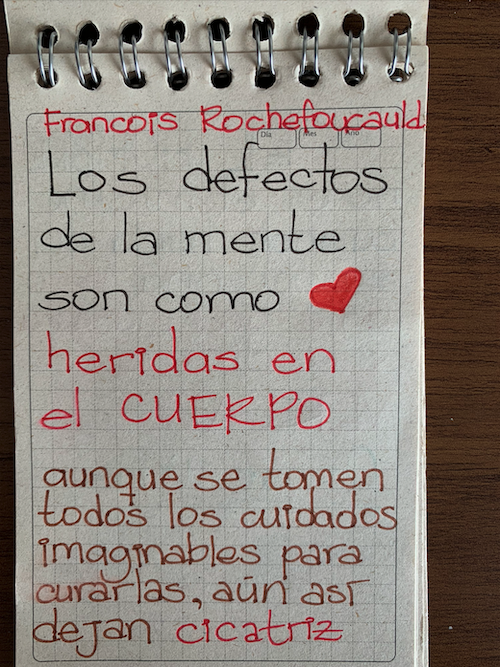 Francois Rochefoucauld
Día Mes Año
Los defectos
de la mente
son como
heridas en
el CUERPO
aunque se tomen
todos los cuidados
imaginables para
curarlas, aún así
dejan cicatriz